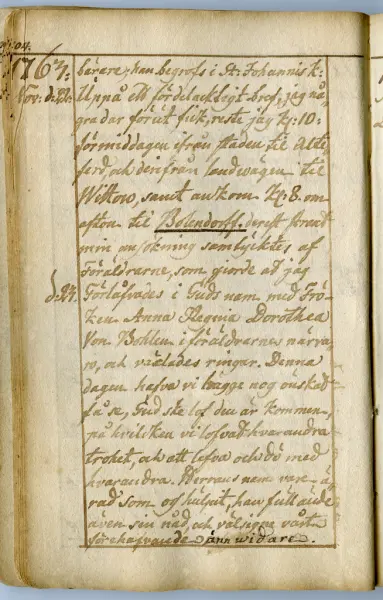 104.
1767.
Nov: d. 22.
bärare, han begrofs i St. Johannis k:
Uppå ett fördelacktigt bref, jag nå,
gra dar förut fick, reste jag Kl: 10:
förmiddagen ifrån staden til Alte,
fer, och derifrån landwägen til
Wittow, samt ankom Kl: 8. om
afton til Bolendorff, derest strax
min ansökning samtyktes af
Föräldrarne, som giorde at jag
d. 24. Förlofvades i Guds nam med Frö,
ken Anna Regina Dorothea
von Bohlen i föräldrarnes närva,
ro, och växlades ringar. Denna
dagen hafva vi bägge nog önskat
få se, Gud ske lof den är kommen,
på hvilcken vi lofvat hvarandra
trohet, och att lefva och dö med
hvarandra. Herrans nam vare ä,
rad som og hulpit, han fullände
även sin nåd, och välsigne vårt
förehafvande änn widare.